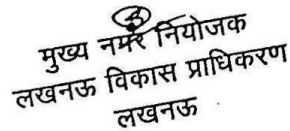 मुख्य नगर नियोजक
लखनऊ विकास प्राधिकरण
लखनऊ